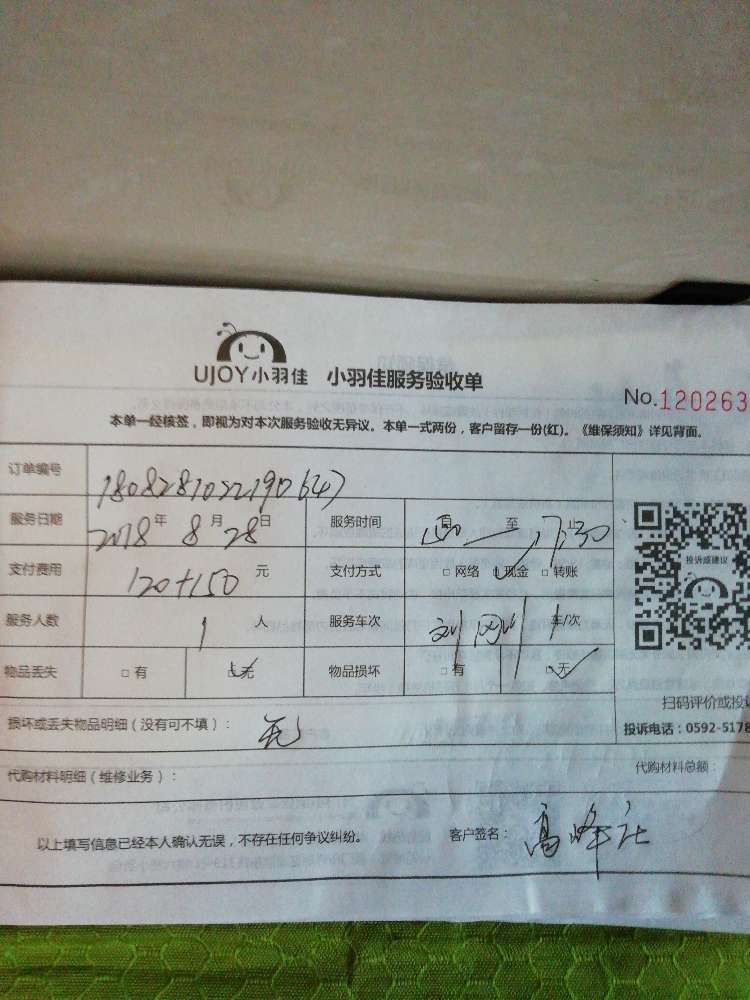 UJOY小羽佳 小羽佳服务验收单
No.120263
本单一经核签，即视为对本次服务验收无异议。本单一式两份，客户留存一份(红)。《维保须知》详见背面。
订单编号 1808281022190647
服务日期 2018年8月28日 服务时间 至 17:30
支付费用 120+150 元 支付方式 □网络 □现金 □转账
投诉或建议
服务人数 1 人 服务车次 刘 刚 1 车/次
物品丢失 □有 □无 物品损坏 □有 □无
扫码评价或投
损坏或丢失物品明细（没有可不填）： 无
投诉电话：0592-5178
代购材料明细（维修业务）：
代购材料总额：
以上填写信息已经本人确认无误，不存在任何争议纠纷。 客户签名： 高峰